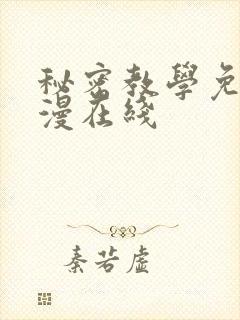 秘密教學免
漫在綫
秦若虛